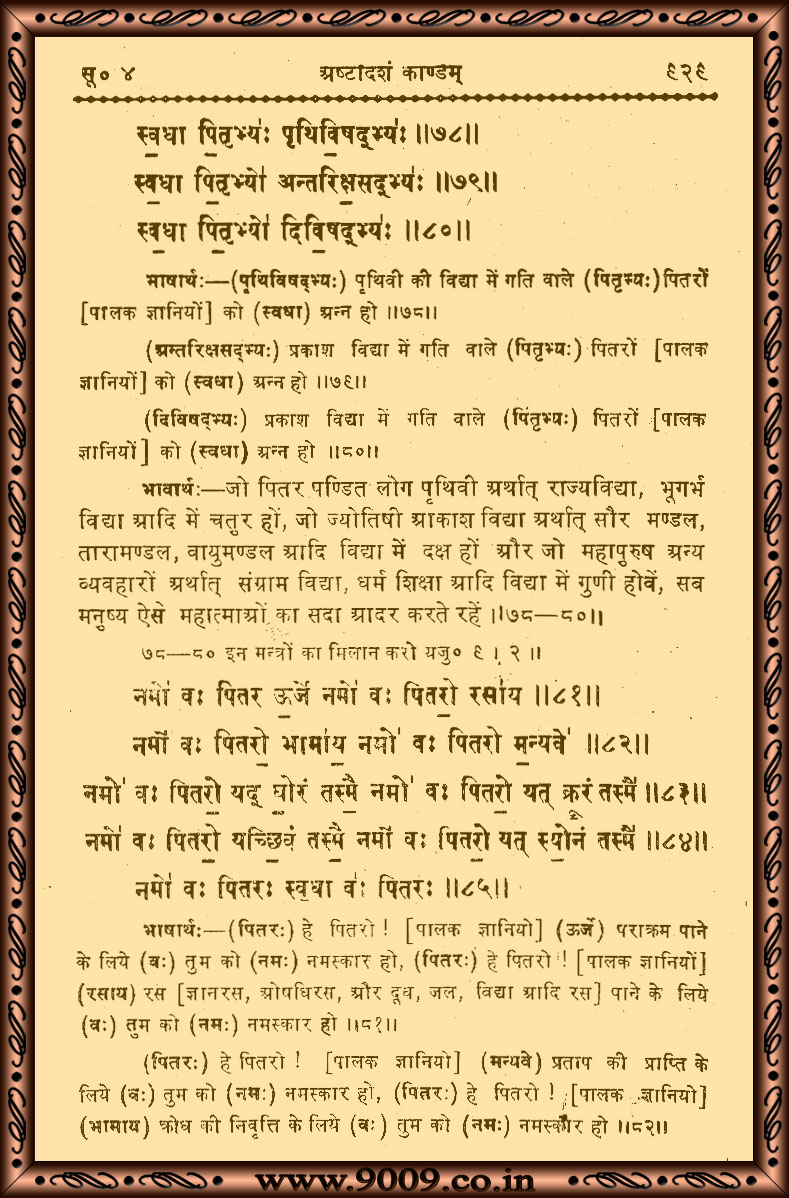 सू० ४ अष्टादशं काण्डम् ९२९
स्व॒धा पि॒तृभ्यः॑ पृथिवि॒षद्भ्यः॑ ॥७८॥
स्व॒धा पि॒तृभ्यो॑ अन्तरिक्ष॒सद्भ्यः॑ ॥७९॥
स्व॒धा पि॒तृभ्यो॑ दिवि॒षद्भ्यः॑ ॥८०॥
भाषार्थः—(पृथिविषद्भ्यः) पृथिवी की विद्या में गति वाले (पितृभ्यः) पितरों
[पालक ज्ञानियों] को (स्वधा) अन्न हो ॥७८॥
(अन्तरिक्षसद्भ्यः) प्रकाश विद्या में गति वाले (पितृभ्यः) पितरों [पालक
ज्ञानियों] को (स्वधा) अन्न हो ॥७९॥
(दिविषद्भ्यः) प्रकाश विद्या में गति वाले (पितृभ्यः) पितरों [पालक
ज्ञानियों] को (स्वधा) अन्न हो ॥८०॥
भावार्थः—जो पितर पण्डित लोग पृथिवी अर्थात् राज्यविद्या, भूगर्भ
विद्या आदि में चतुर हों, जो ज्योतिषी आकाश विद्या अर्थात् सौर मण्डल,
तारामण्डल, वायुमण्डल आदि विद्या में दक्ष हों और जो महापुरुष अन्य
व्यवहारों अर्थात् संग्राम विद्या, धर्म शिक्षा आदि विद्या में गुणी होवें, सब
मनुष्य ऐसे महात्माओं का सदा आदर करते रहें ॥७८—८०॥
७८—८० इन मन्त्रों का मिलान करो यजु० ९ । २ ॥
नमो॑ वः पितर ऊ॒र्जे नमो॑ वः पितरो॒ रसा॑य ॥८१॥
नमो॑ वः पितरो॒ भामा॑य॒ नमो॑ वः पितरो म॒न्यवे॑ ॥८२॥
नमो॑ वः पितरो॒ यद् घो॒रं तस्मै॒ नमो॑ वः पितरो॒ यत् क्रू॒रं तस्मै॑ ॥८३॥
नमो॑ वः पितरो॒ यच्छि॒वं तस्मै॒ नमो॑ वः पितरो॒ यत् स्यो॒नं तस्मै॑ ॥८४॥
नमो॑ वः पितरः स्व॒धा वः॑ पितरः ॥८५॥
भाषार्थः—(पितरः) हे पितरो ! [पालक ज्ञानियो] (ऊर्जे) पराक्रम पाने
के लिये (वः) तुम को (नमः) नमस्कार हो, (पितरः) हे पितरो ! [पालक ज्ञानियों]
(रसाय) रस [ज्ञानरस, ओषधिरस, और दूध, जल, विद्या आदि रस] पाने के लिये
(वः) तुम को (नमः) नमस्कार हो ॥८१॥
(पितरः) हे पितरो ! [पालक ज्ञानियो] (मन्यवे) प्रताप की प्राप्ति के
लिये (वः) तुम को (नमः) नमस्कार हो, (पितरः) हे पितरो ! [पालक ज्ञानियो]
(भामाय) क्रोध की निवृत्ति के लिये (वः) तुम को (नमः) नमस्कार हो ॥८२॥
www.9009.co.in